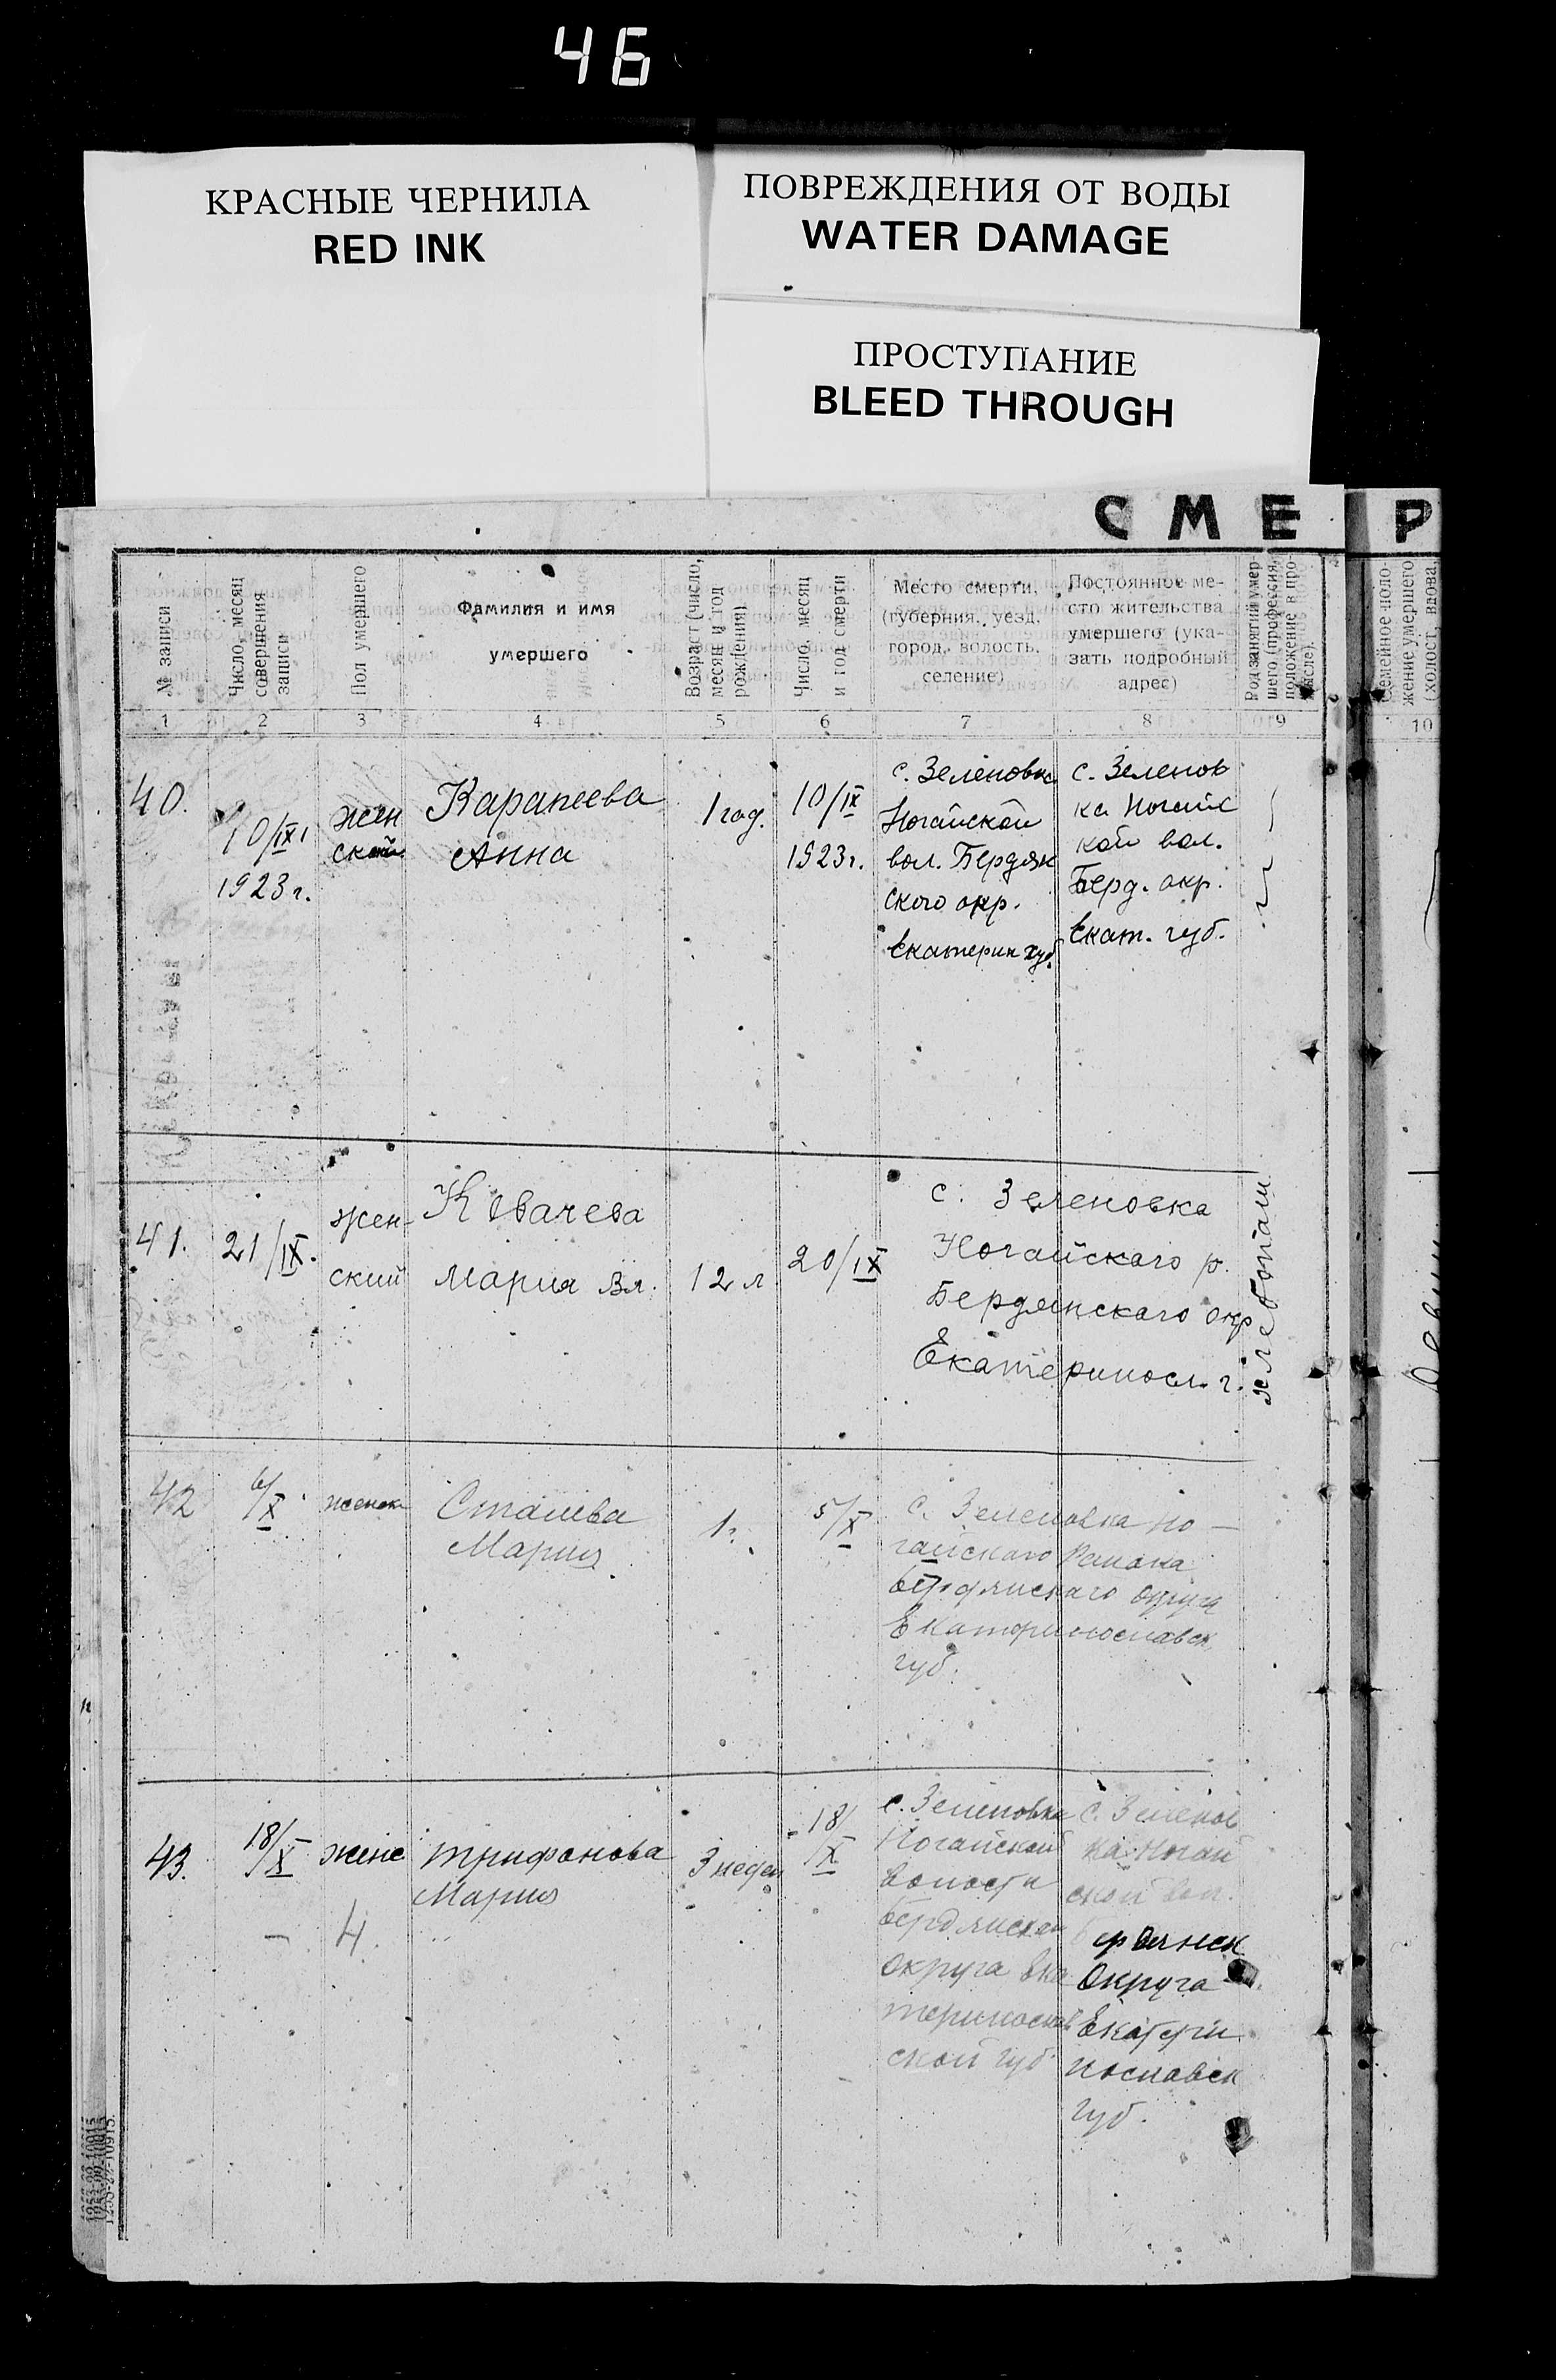 46
КРАСНЫЕ ЧЕРНИЛА
RED INK
ПОВРЕЖДЕНИЯ ОТ ВОДЫ
WATER DAMAGE
ПРОСТУПАНИЕ
BLEED THROUGH
СМЕ Р
№ записи
Число, месяц
совершения
записи
Пол умершего
Фамилия и имя
умершего
Возраст (число,
месяц и год
рождения)
Число, месяц
и год смерти
Место смерти,
(губерния, уезд,
город, волость,
селение)
Постоянное ме-
сто жительства
умершего (ука-
зать подробный
адрес)
Род занятий умер-
шего (профессия,
положение в про-
мысле).
Семейное поло-
жение умершего
(холост, вдова,
1 2 3 4 5 6 7 8 9 10
40.
10/IX
1923 г.
жен
ской
Карапеева
Анна
1 год.
10/IX
1923 г.
с. Зеленовка
Ногайской
вол. Бердян
ского окр.
Екатерин губ.
с. Зеленов
ка Ногайс
кой вол.
Берд. окр.
Екат. губ.
41.
21/IX.
жен-
ский
Ковачева
Мария Вл.
12 л
20/IX
с. Зеленовка
Ногайскаго р.
Бердянскаго окр
Екатериносл. г.
хлебопаш
42
6/X
женск
Сталева
Мария
1 г.
5/X
с. Зеленовка но-
гайскаго Района
бердянскаго округа
Екатеринославск
губ.
43.
18/X
женс
Трифонова
Мария
3 недел
18/X
с. Зеленовка
Ногайской
волости
бердянскаго
округа Ека
теринослав
ской губ
с. Зеленов
ка Ногай
ской вол.
бердянск
Округа
Екатери
нославск
губ.
4.